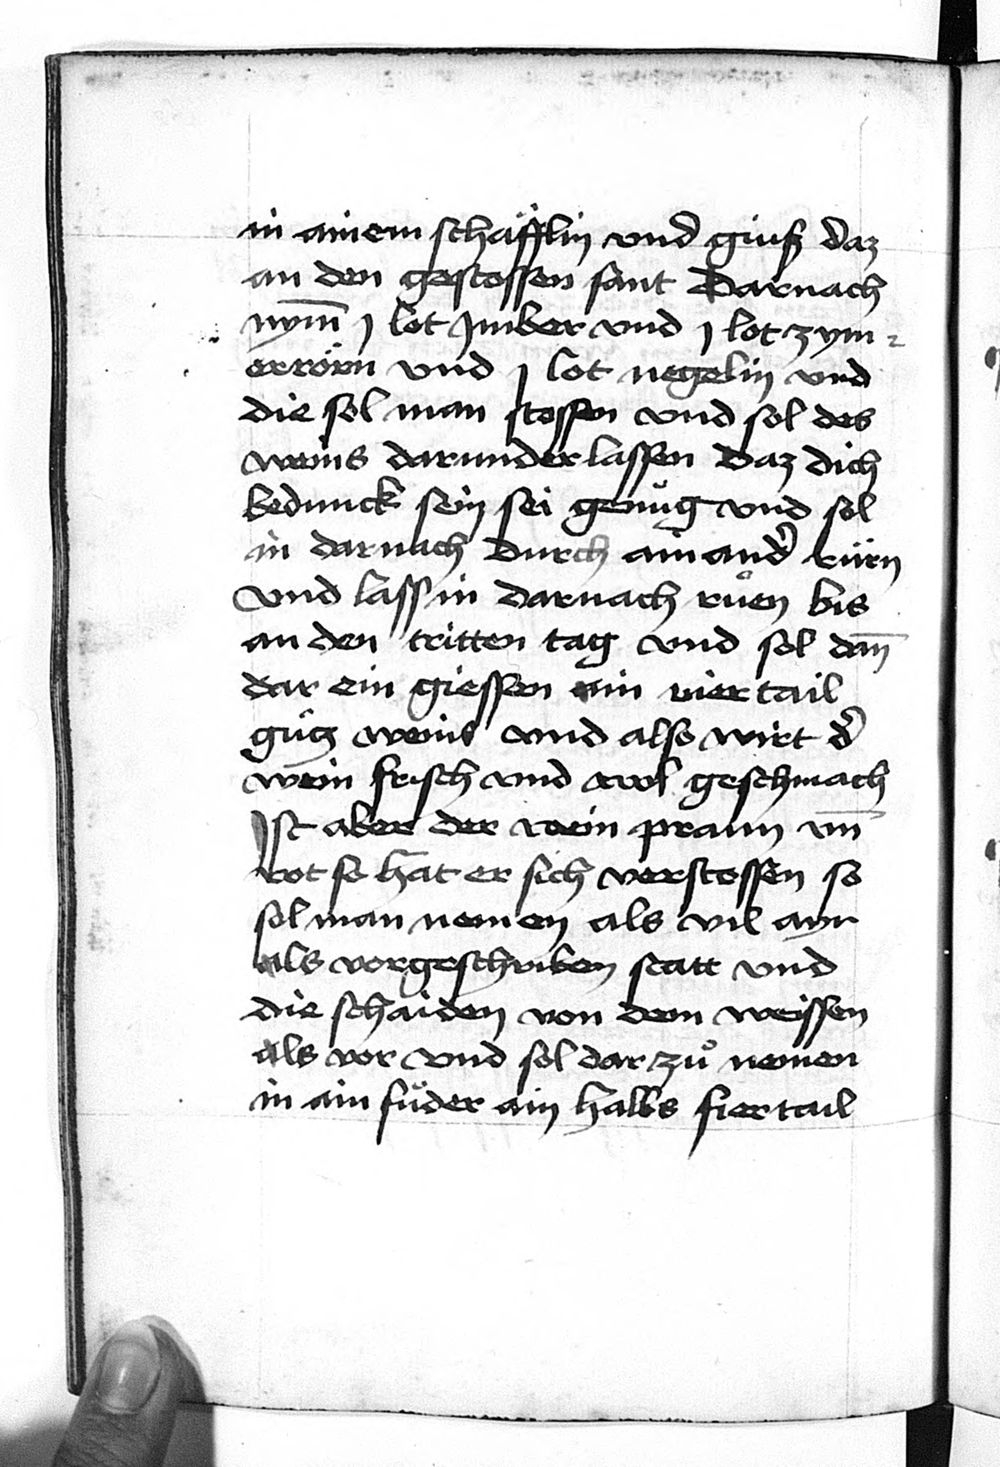 in ainem schäfflin vnd giuß daz
an den gestossen sant Darnach
nym̅ j lot Jmber vnd j lot zym⸗
errörn vnd j lot negelin vnd
die sol man stossen vnd sol des
weins darunder lassen Daz dich
bedunck sein sei genůg vnd sol
in darnach Durch ain and̾ rürn
vnd lass in darnach růen bis
an den tritten tag vnd sol dan̅
dar ein giessen ain viertail
gůtz weins vnd also wirt d̾
wein frisch vnd wol geschmach
Jst aber der wein praun vn̅
rot so hat er sich verstossen so
sol man nemen als vil ayr
als vorgeschriben statt vnd
die schaiden von dem weissen
als vor vnd sol dar zů nemen
in ain fůder ain halbs fiertail